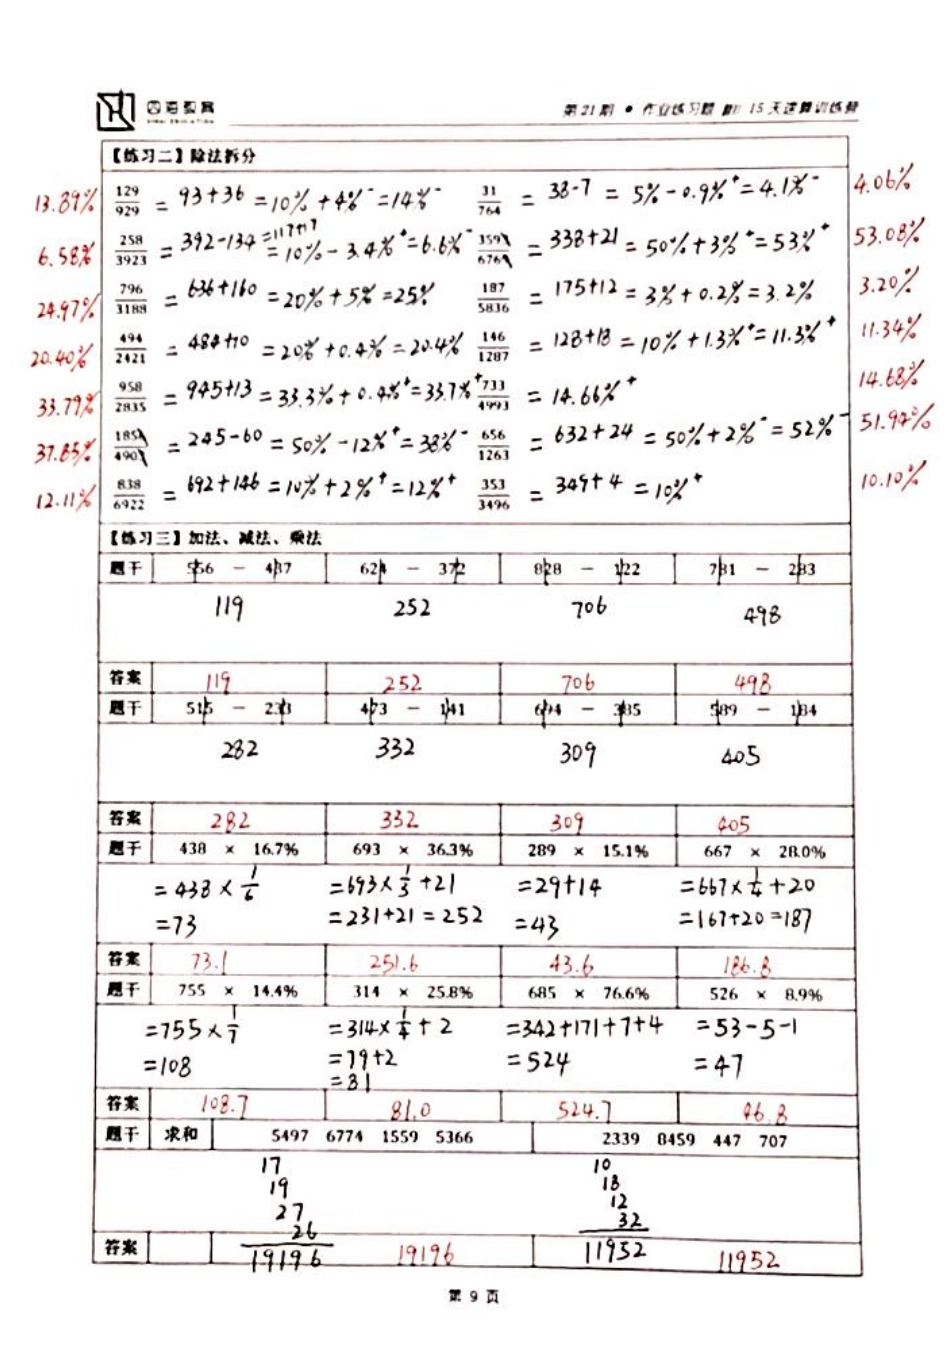 四海教育
第21期 • 作业练习题 15天速算训练营
【练习二】除法拆分
13.89% 129/929 = 93+36 =10%+4%⁻=14%⁻ 31/764 = 38-7 = 5%-0.9%⁺=4.1%⁻ 4.06%
6.58% 258/3923 = 392-134 =117+17 =10%-3.4%⁺=6.6%⁻ 3591/6761 = 338+21 = 50%+3%⁺=53%⁺ 53.08%
24.97% 796/3188 = 636+160 =20%+5%=25% 187/5836 = 175+12 = 3%+0.2%=3.2% 3.20%
20.40% 494/2421 = 484+10 =20%+0.4%=20.4% 146/1287 = 128+18 = 10%+1.3%⁺=11.3%⁺ 11.34%
33.79% 958/2835 = 945+13 =33.3%+0.4%⁺=33.7%⁺ 733/4993 = 14.66%⁺ 14.68%
37.85% 185/490 = 245-60 =50%-12%⁺=38%⁻ 656/1263 = 632+24 = 50%+2%⁻=52%⁻ 51.94%
12.11% 838/6922 = 692+146 =10%+2%⁺=12%⁺ 353/3496 = 349+4 =10%⁺ 10.10%
【练习三】加法、减法、乘法
题干 556 - 437 624 - 372 828 - 122 781 - 283
119 252 706 498
答案 119 252 706 498
题干 515 - 233 473 - 141 694 - 385 589 - 184
282 332 309 405
答案 282 332 309 405
题干 438 × 16.7% 693 × 36.3% 289 × 15.1% 667 × 28.0%
=438×1/6 =693×1/3+21 =29+14 =667×1/4+20
=73 =231+21=252 =43 =167+20=187
答案 73.1 251.6 43.6 186.8
题干 755 × 14.4% 314 × 25.8% 685 × 76.6% 526 × 8.9%
=755×1/7 =314×1/4+2 =342+171+7+4 =53-5-1
=108 =79+2 =524 =47
=81
答案 108.7 81.0 524.7 46.8
题干 求和 5497 6774 1559 5366 2339 8459 447 707
17 10
19 18
27 12
26 32
答案 19196 19196 11952 11952
第 9 页